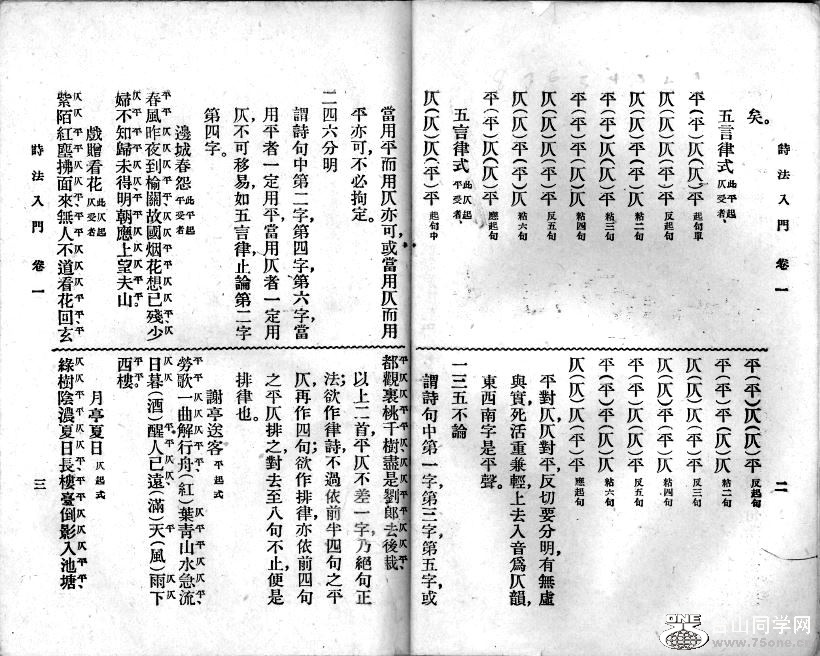 詩法入門 卷一 二
矣。
五言律式 此平起仄受者、
平(平)仄(仄)平 起句單
仄(仄)仄(平)平 反起句
仄(仄)平(平)仄 粘二句
平(平)仄(仄)平 粘三句
平(平)平(仄)仄 粘四句
仄(仄)仄(平)平 反五句
仄(仄)平(平)仄 粘六句
平(平)仄(仄)平 應起句
五言律式 此仄起平受者、
仄(仄)仄(平)平 起句中
平(平)仄(仄)平 反起句
平(平)平(仄)仄 粘二句
仄(仄)仄(平)平 反三句
仄(仄)平(平)仄 粘四句
平(平)仄(仄)平 反五句
平(平)平(仄)仄 粘六句
仄(仄)仄(平)平 應起句
平對仄,仄對平,反切要分明,有無虛
與實,死活重兼輕,上去入音爲仄韻,
東西南字是平聲。
一三五不論
謂詩句中第一字,第三字,第五字,或
當用平而用仄亦可,或當用仄而用
平亦可,不必拘定。
二四六分明
謂詩句中第二字,第四字,第六字,當
用平者一定用平,當用仄者一定用
仄,不可移易,如五言律,止論第二字
第四字。
邊城春怨 此平起平受者、
春風昨夜到榆關故國烟花想已殘少
婦不知歸未得明朝應上望夫山
戲贈看花 此仄起仄受者
紫陌紅塵拂面來無人不道看花回玄
詩法入門 卷一 三
都觀裏桃千樹盡是劉郎去後栽
以上二首,平仄不差一字,乃絕句正
法;欲作律詩,不過依前半四句之平
仄,再作四句;欲作排律,亦依前四句
之平仄排之對去,至八句不止,便是
排律也。
謝亭送客 平起式
勞歌一曲解行舟(紅)葉青山水急流
日暮(酒)醒人已遠(滿)天(風)雨下
西樓
月亭夏日 仄起式
綠樹陰濃夏日長樓臺倒影入池塘
ONE
山同学网
www.75one.com